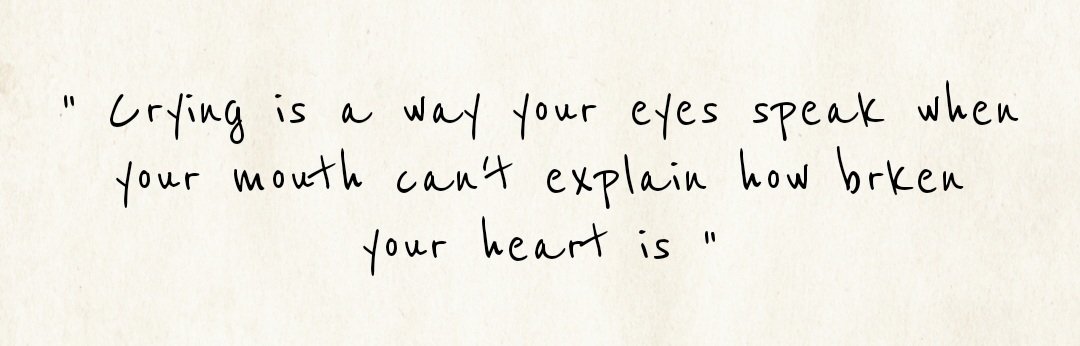 " Crying is a way your eyes speak when
your mouth can't explain how brken
your heart is "